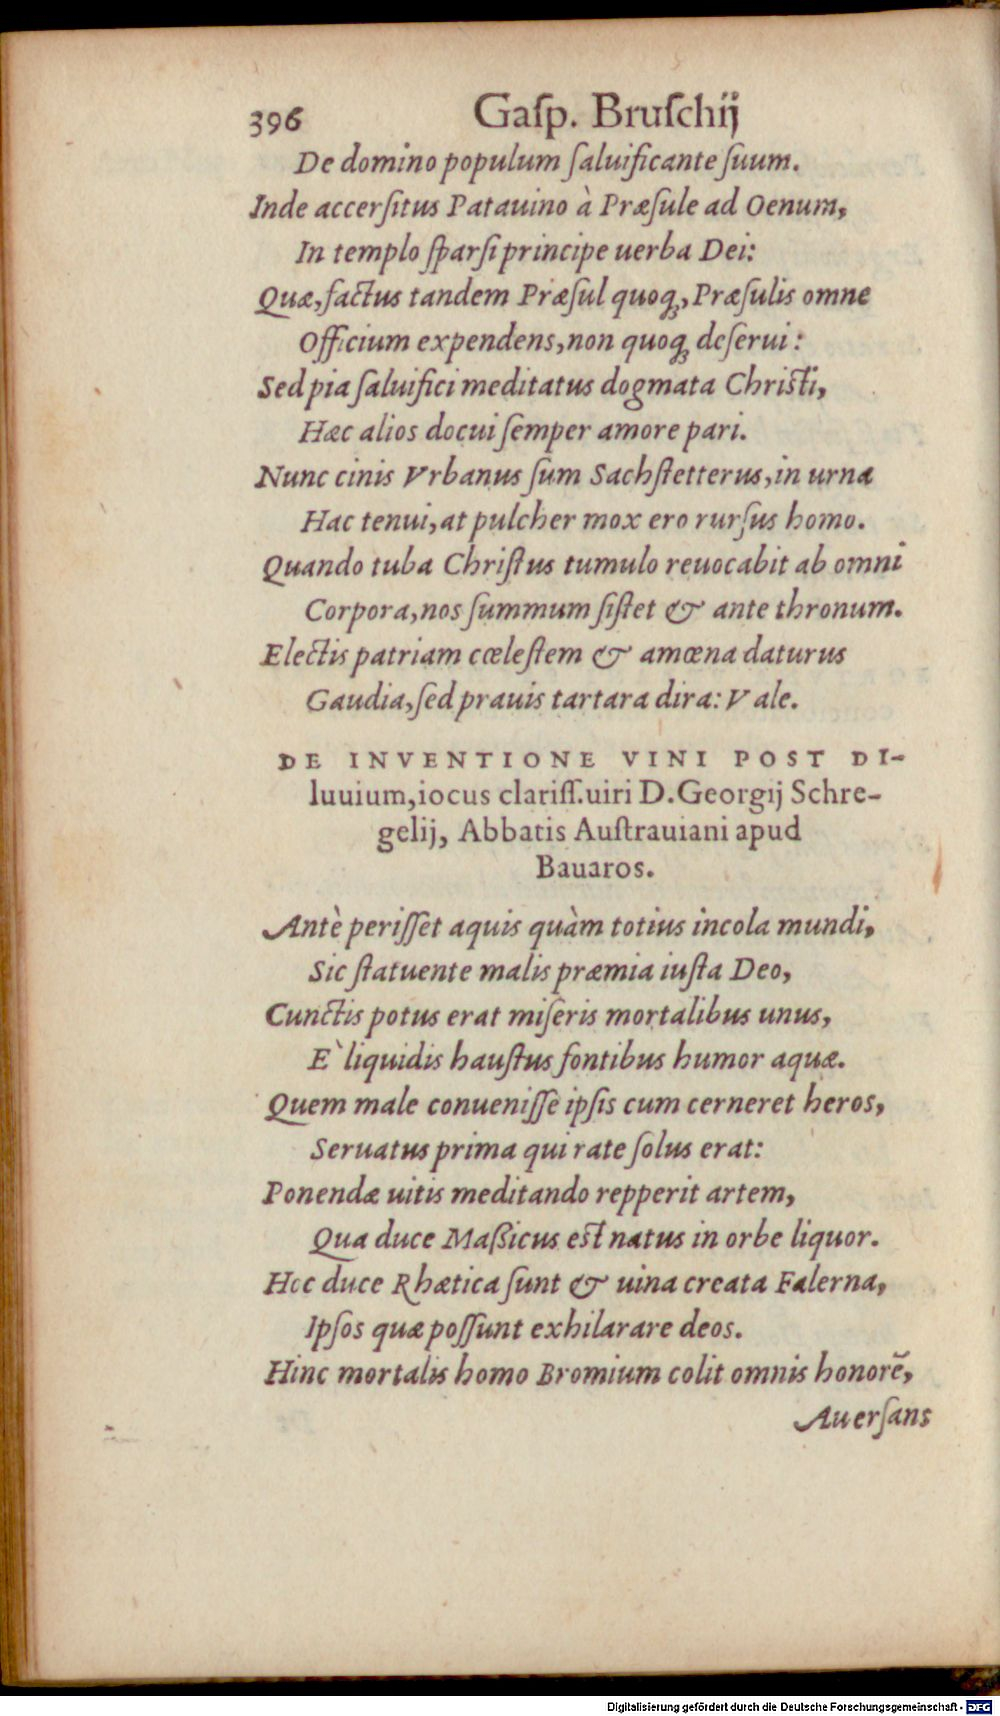 396 Gaſp. Bruſchij
De domino populum ſaluificante ſuum.
Inde accerſitus Patauino à Præſule ad Oenum,
In templo ſparſi principe uerba Dei:
Quæ, factus tandem Præſul quoq;, Præſulis omne
Officium expendens, non quoq; deſerui:
Sed pia ſaluifici meditatus dogmata Chriſti,
Hæc alios docui ſemper amore pari.
Nunc cinis Vrbanus ſum Sachſtetterus, in urna
Hac tenui, at pulcher mox ero rurſus homo.
Quando tuba Chriſtus tumulo reuocabit ab omni
Corpora, nos ſummum ſiſtet & ante thronum.
Electis patriam cœleſtem & amœna daturus
Gaudia, ſed prauis tartara dira: Vale.
DE INVENTIONE VINI POST DI-
luuium, iocus clariſſ. uiri D. Georgij Schre-
gelij, Abbatis Auſtrauiani apud
Bauaros.
Antè periſſet aquis quàm totius incola mundi,
Sic ſtatuente malis præmia iuſta Deo,
Cunctis potus erat miſeris mortalibus unus,
E` liquidis hauſtus fontibus humor aquæ.
Quem male conueniſſe ipſis cum cerneret heros,
Seruatus prima qui rate ſolus erat:
Ponendæ uitis meditando repperit artem,
Qua duce Maßicus est natus in orbe liquor.
Hoc duce Rhætica ſunt & uina creata Falerna,
Ipſos quæ poſſunt exhilarare deos.
Hinc mortalis homo Bromium colit omnis honorē,
Auerſans
Digitalisierung gefördert durch die Deutsche Forschungsgemeinschaft - DFG